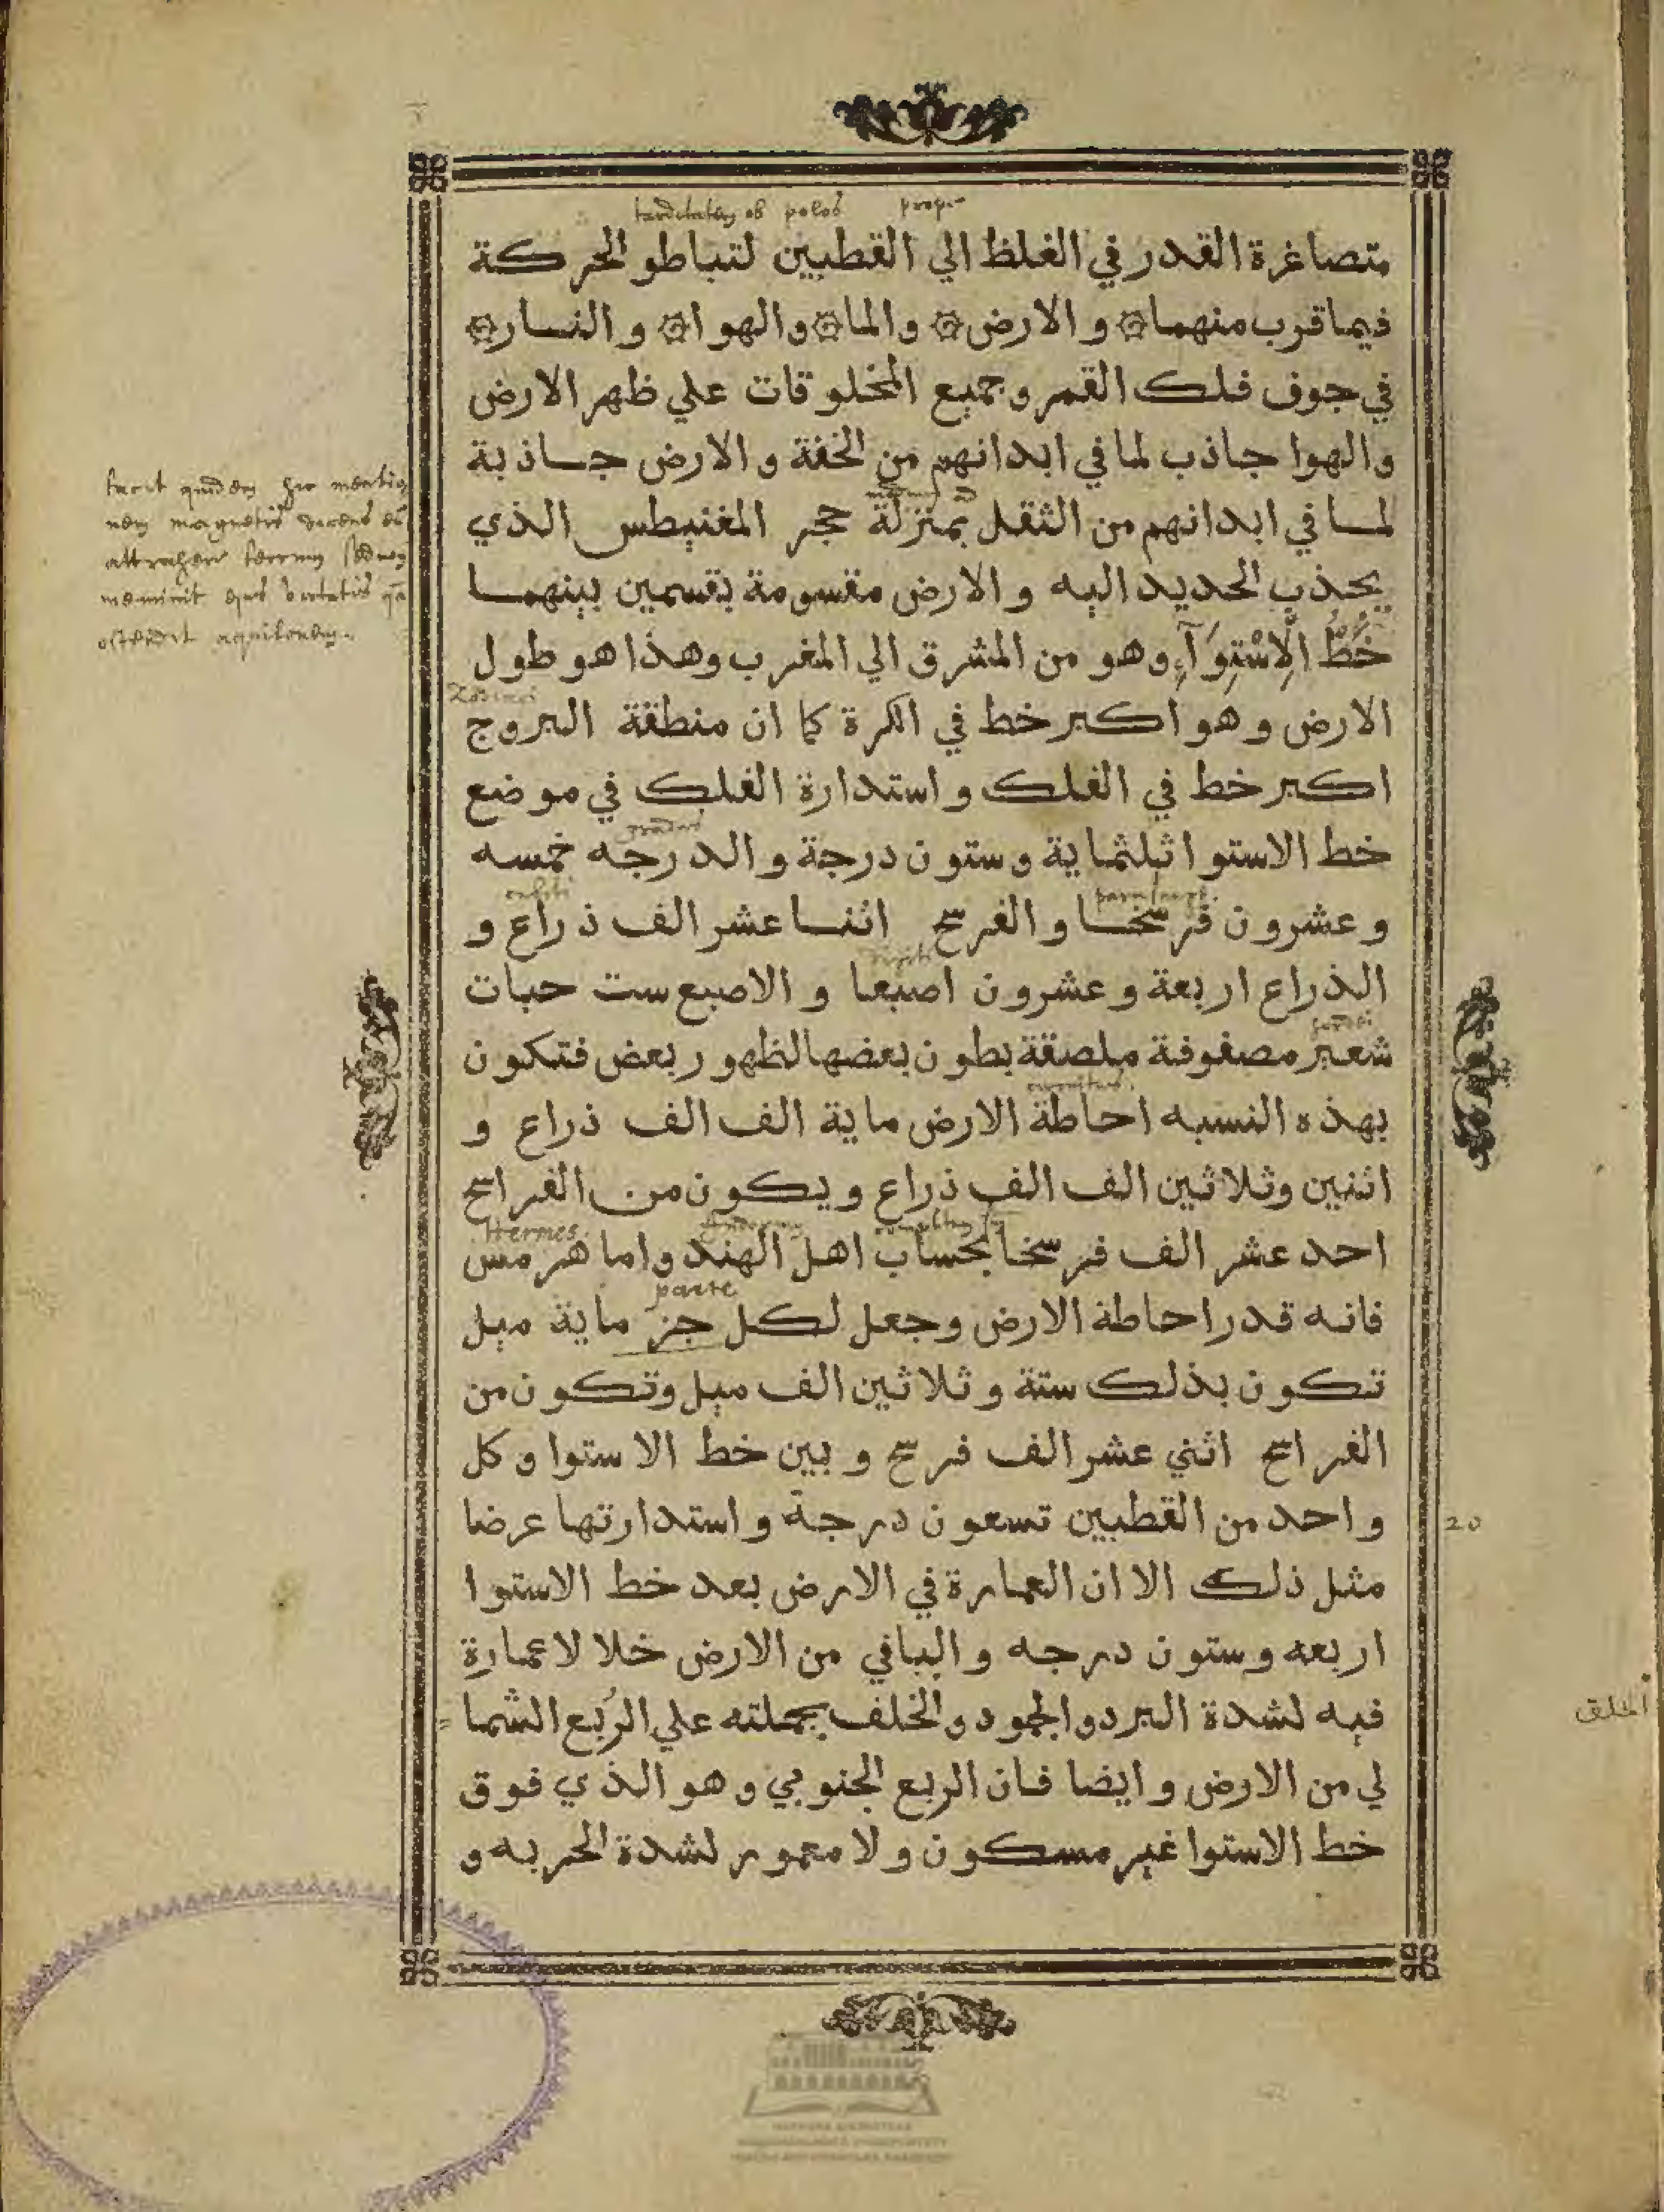 متصاغرة القدر في الغلظ الي القطبين لتباطو الحركة
فيما قرب منهما ۞ والارض ۞ والما ۞ والهوا ۞ والنار ۞
في جوف فلك القمر وجميع المخلوقات علي ظهر الارض
والهوا جاذب لما في ابدانهم من الخفة والارض جاذبة
لما في ابدانهم من الثقل بمنزلة حجر المغنيطس الذي
يجذب الحديد اليه والارض مقسومة بقسمين بينهما
خَطُّ الِاسْتِوَآءِ وهو من المشرق الي المغرب وهذا هو طول
الارض وهو اكبر خط في الكرة كما ان منطقة البروج
اكبر خط في الفلك واستدارة الفلك في موضع
خط الاستوا ثلثماية وستون درجة والدرجه خمسه
وعشرون فرسخا والفرسخ اثنا عشر الف ذراع و
الذراع اربعة وعشرون اصبعا والاصبع ست حبات
شعير مصفوفة ملصقة بطون بعضها لظهور بعض فتكون
بهذه النسبه احاطة الارض ماية الف الف ذراع و
اثنين وثلاثين الف الف ذراع ويكون من الفراسخ
احد عشر الف فرسخا بحساب اهل الهند واما هرمس
فانه قدر احاطة الارض وجعل لكل جز ماية ميل
تكون بذلك ستة وثلاثين الف ميل وتكون من
الفراسخ اثني عشر الف فرسخ وبين خط الاستوا وكل
واحد من القطبين تسعون درجة واستدارتها عرضا
مثل ذلك الا ان العمارة في الارض بعد خط الاستوا
اربعه وستون درجه والباقي من الارض خلا لا عمارة
فيه لشدة البرد والجمود والخلف بجملته علي الرُبع الشما=
لي من الارض وايضا فان الربع الجنوبي وهو الذي فوق
خط الاستوا غير مسكون ولا معمور لشدة الحر به و
tarditatem ob polos prope
gradus
cubiti
digiti
Hermes
parte
20
الخلق
facit quidem hic mentio
nem magnetis dicens eum
attrahere ferrum sed non
meminit eius virtutis qua
ostendit aquilonem.